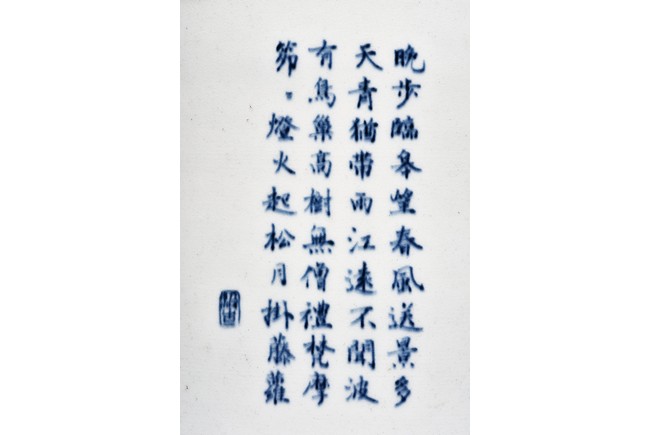 晚步臨皋望春風送景多
天青猶帶雨江遠不聞波
有鳥巢高樹無僧禮梵摩
燈火起松月掛藤蘿